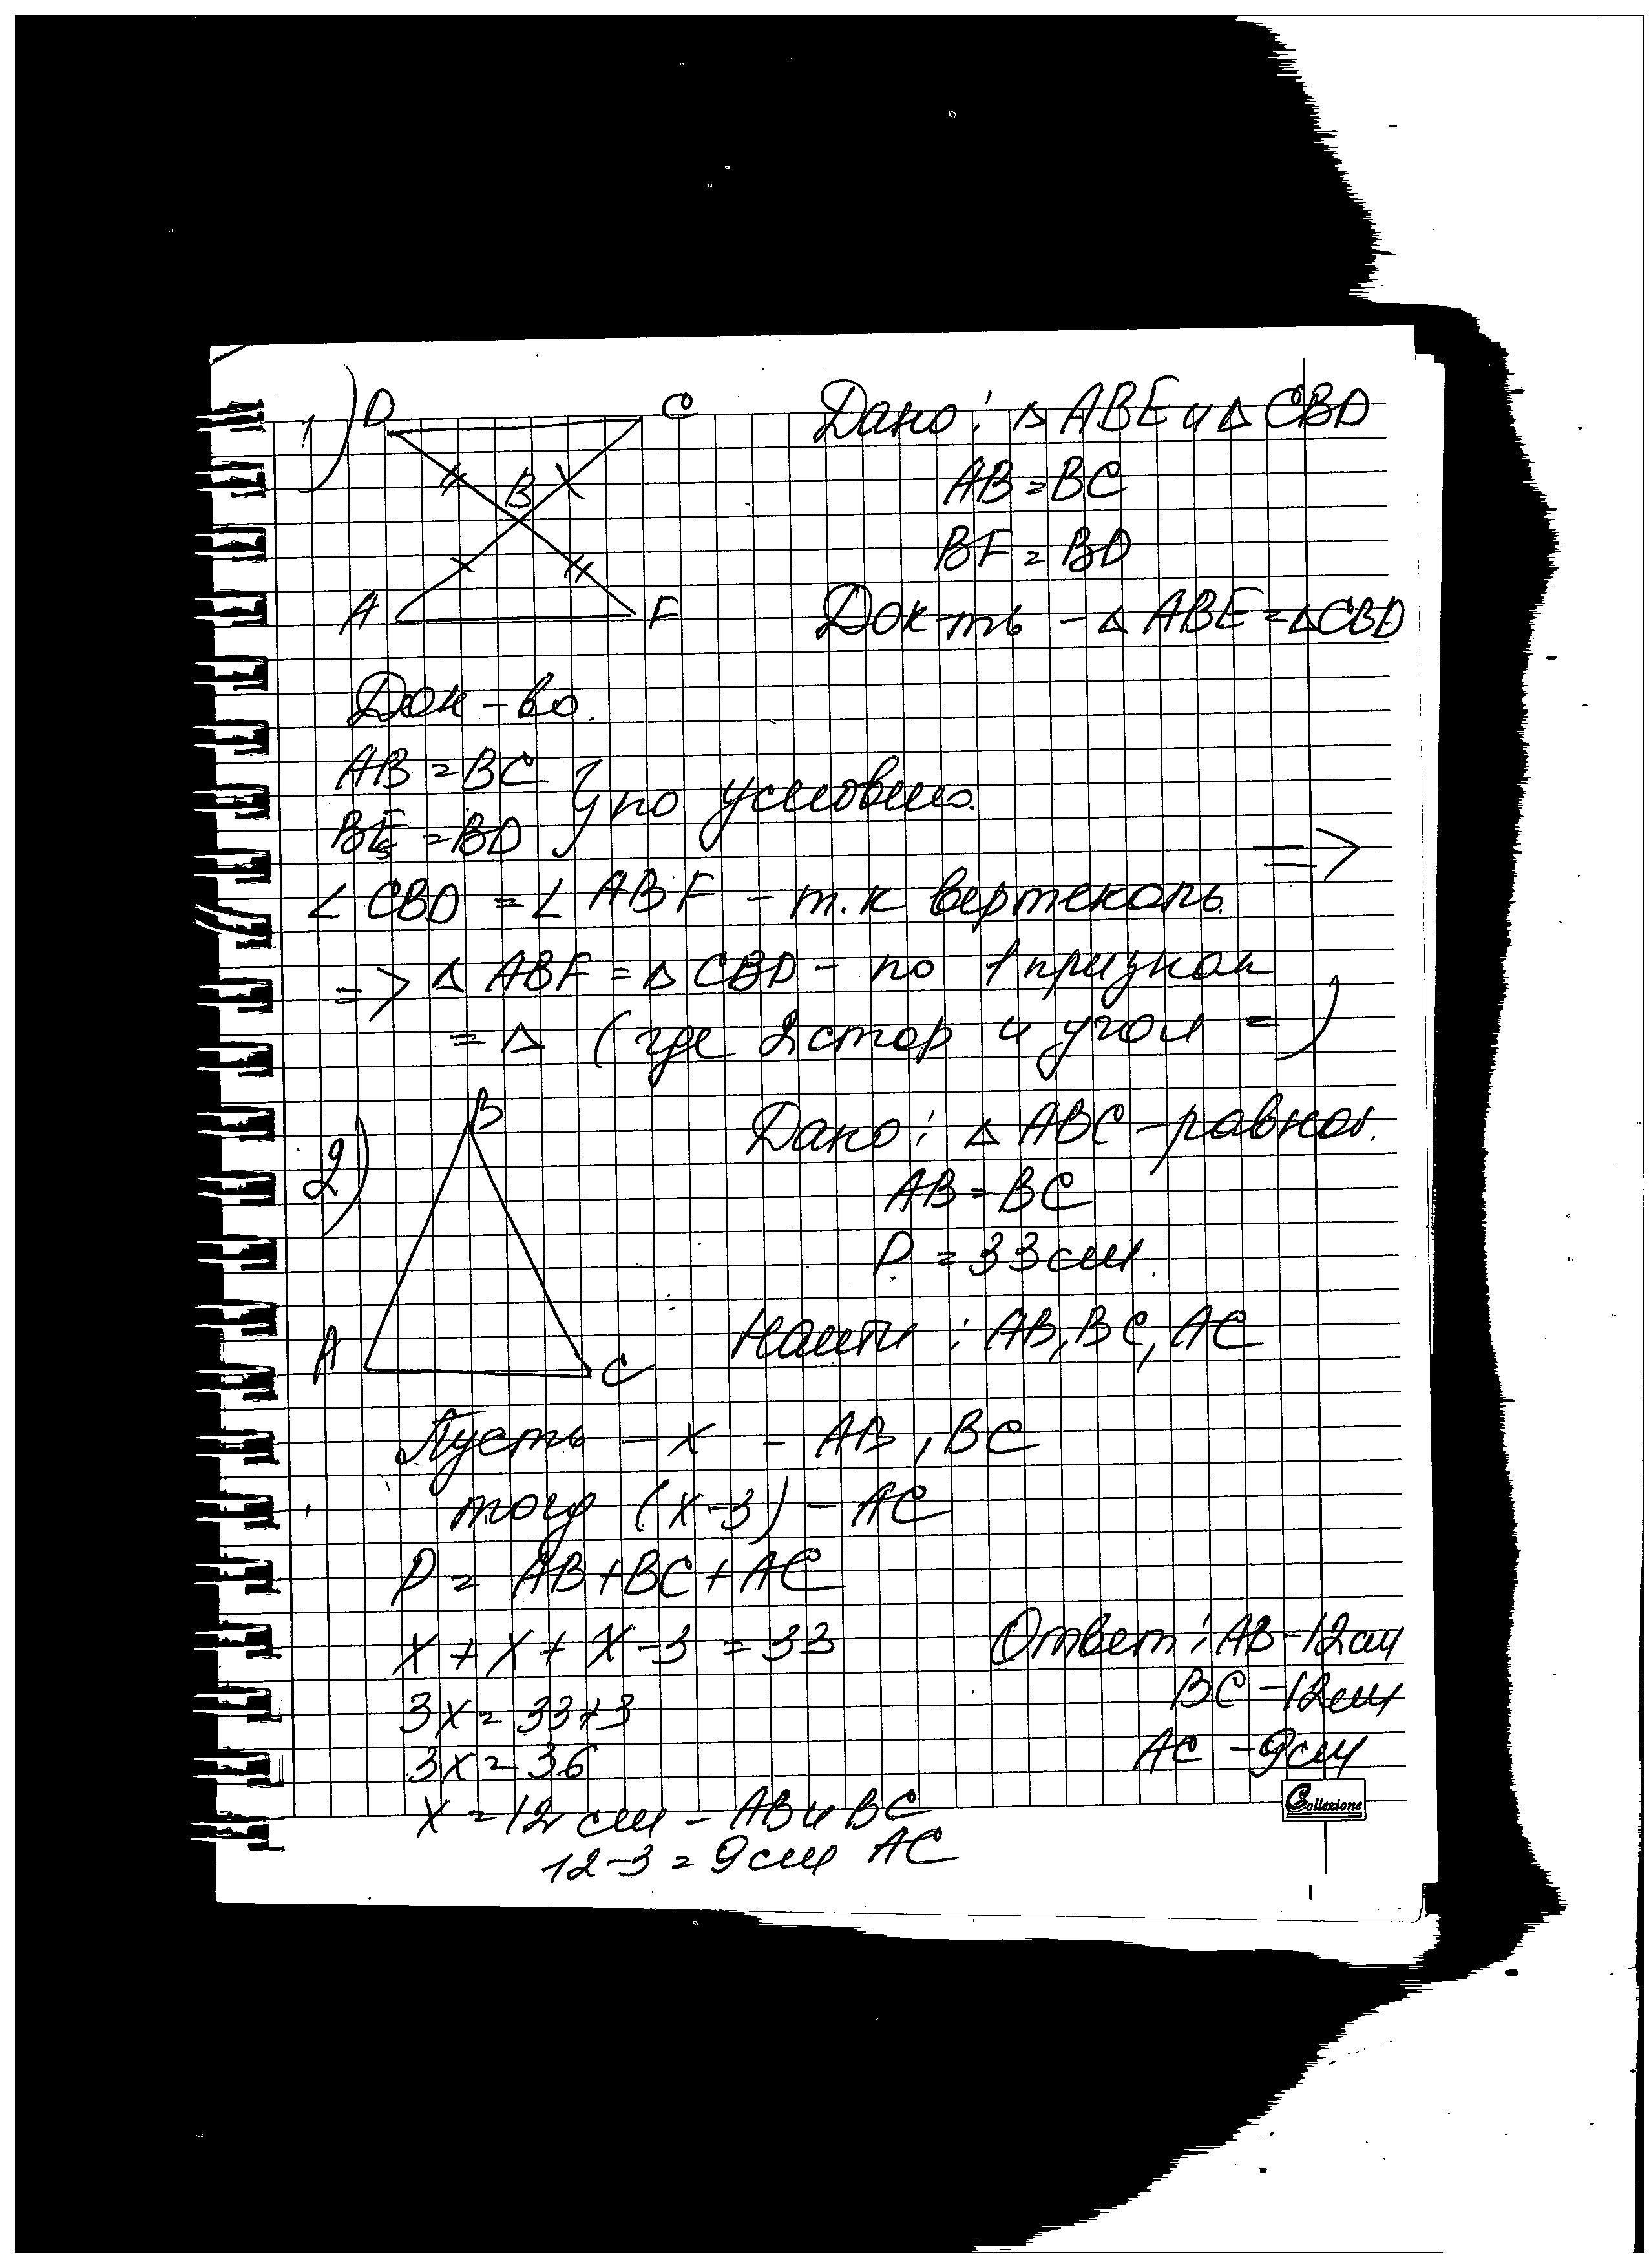 1) D C Дано: △ ABE и △ CBD
B AB = BC
BF = BD
A F Док-ть - △ ABE = △ CBD
Док-во.
AB = BC } по условию.
BF = BD
∠ CBD = ∠ ABF - т.к вертекаль. =>
=> △ ABF = △ CBD - по 1 признак
= △ (где 2 стор и угол =)
2) B Дано: △ ABC - равноб.
AB = BC
P = 33 см.
A C Наити: AB, BC, AC
Пусть - x - AB, BC
тогд (x-3) - AC
P = AB + BC + AC
x + x + x - 3 = 33 Ответ: AB - 12 см
3x = 33 + 3 BC - 12 см
3x = 36 AC - 9 см
x = 12 см - AB и BC
12 - 3 = 9 см AC
Collezione